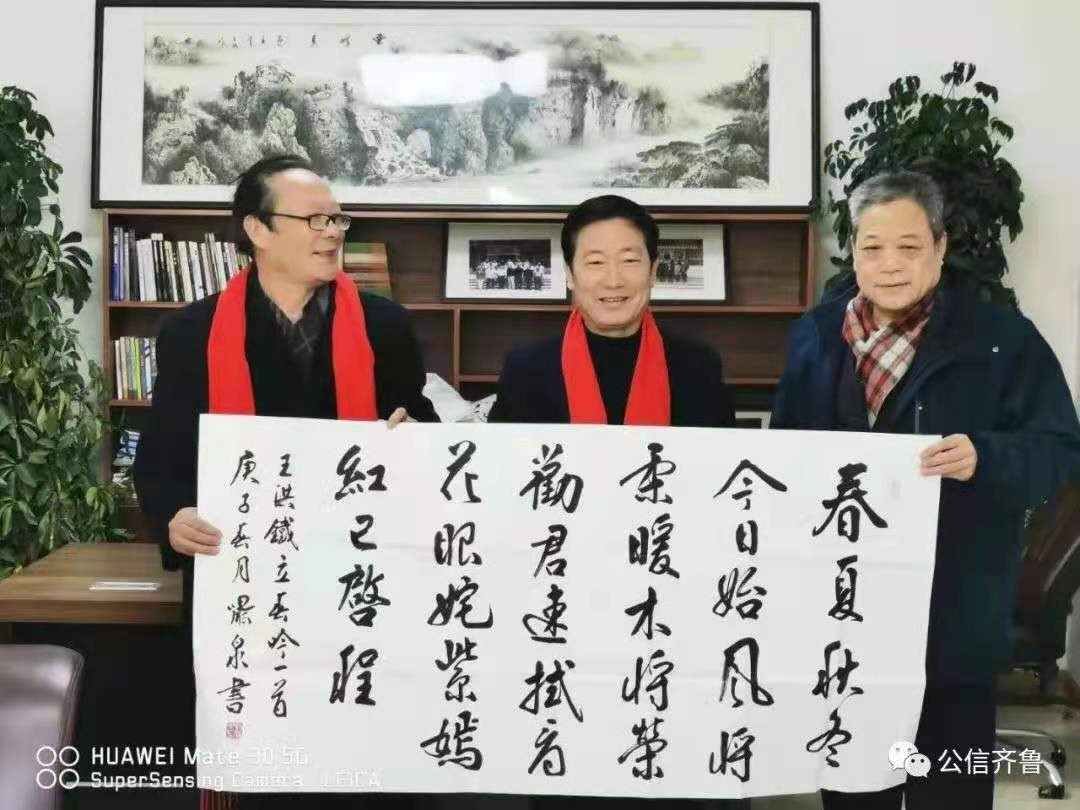 春夏秋冬
今日始风将
柔暖木将荣
劝君速拭看
花眼姹紫嫣
红已启程
王洪铁立春吟一首
庚子春月 泉书
HUAWEI Mate 30 5G
SuperSensing Camera LEICA
公信齐鲁